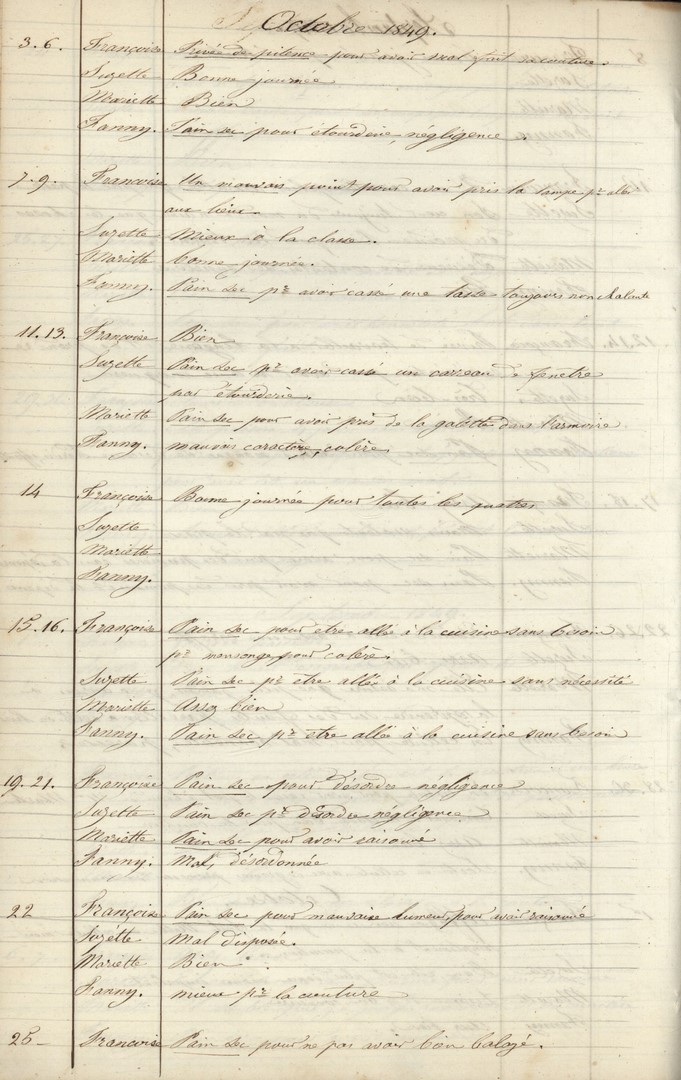 Octobre 1849.
3.6. Françoise Privée de pitence pour avoir mal fait sa couture.
Suzette Bonne journée
Mariette Bien
Fanny. Pain sec pour étourderie, négligence.
7.9. Francoise Un mauvais point pour avoir pris la lampe pr aller
aux lieux.
Suzette Mieux à la classe.
Mariette bonne journée.
Fanny. Pain sec pr avoir cassé une tasse toujours nonchalante
11.13. Françoise Bien
Suzette Pain sec pr avoir cassé un carreau de fenetre
par étourderie.
Mariette Pain sec pour avoir pris de la galette dans l'armoire
Fanny. mauvais caractère, colère,
14 Françoise Bonne journée pour toutes les quatres
Suzette
Mariette
Fanny.
15.16. Françoise Pain sec pour etre allée à la cuisine sans besoin
pr mensonge, pour colère.
Suzette Pain sec pr etre allée à la cuisine sans nécessité
Mariette Assez bien
Fanny. Pain sec pr etre allée à la cuisine sans besoin
19.21. Françoise Pain sec pour désordre négligence
Suzette Pain sec pr désordre négligence
Mariette Pain sec pour avoir raisonné
Fanny. Mal, désordonnée
22 Françoise Pain sec pour mauvaise humeur, pour avoir raisonné
Suzette Mal disposée.
Mariette Bien
Fanny. mieux pr la couture
25 Francoise Pain sec pour ne pas avoir bien balayé.